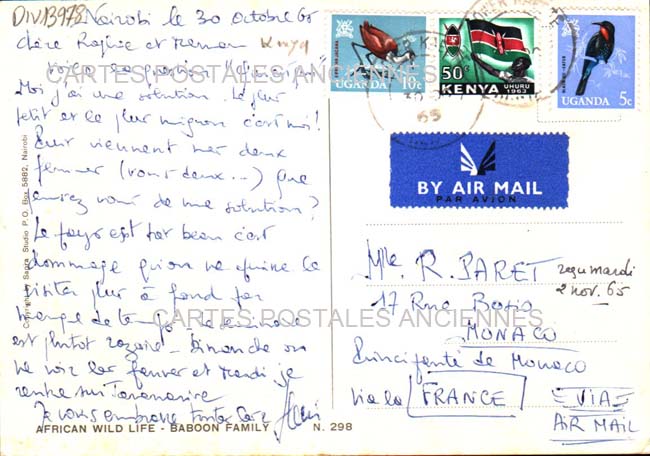 DIV13978 Nairobi le 30 octobre 65
chère et Maman
Moi j'ai une solution. Le plus
petit et le plus mignon c'est moi!
Puis viennent mes deux
femmes (vous deux...) Que
pensez vous de ma solution?
Le pays est très beau c'est
dommage qu'on ne puisse le
visiter plus à fond par
manque de temps. La semaine
est plutôt . Dimanche on
va voir les fauves et Mardi je
rentre sur Tananarive
Je vous embrasse toutes les 2
AFRICAN WILD LIFE - BABOON FAMILY N. 298
Copyright by Sapra Studio P.O. Box 5882, Nairobi
UGANDA 10c
50c KENYA UHURU 1963
UGANDA 5c
65
BY AIR MAIL
PAR AVION
Mlle R. PARET
17 Rue Bosio
MONACO
Principauté de Monaco
via la FRANCE
VIA
AIR MAIL
reçu mardi
2 nov. 65
CARTES POSTALES ANCIENNES
CARTES POSTALES ANCIENNES